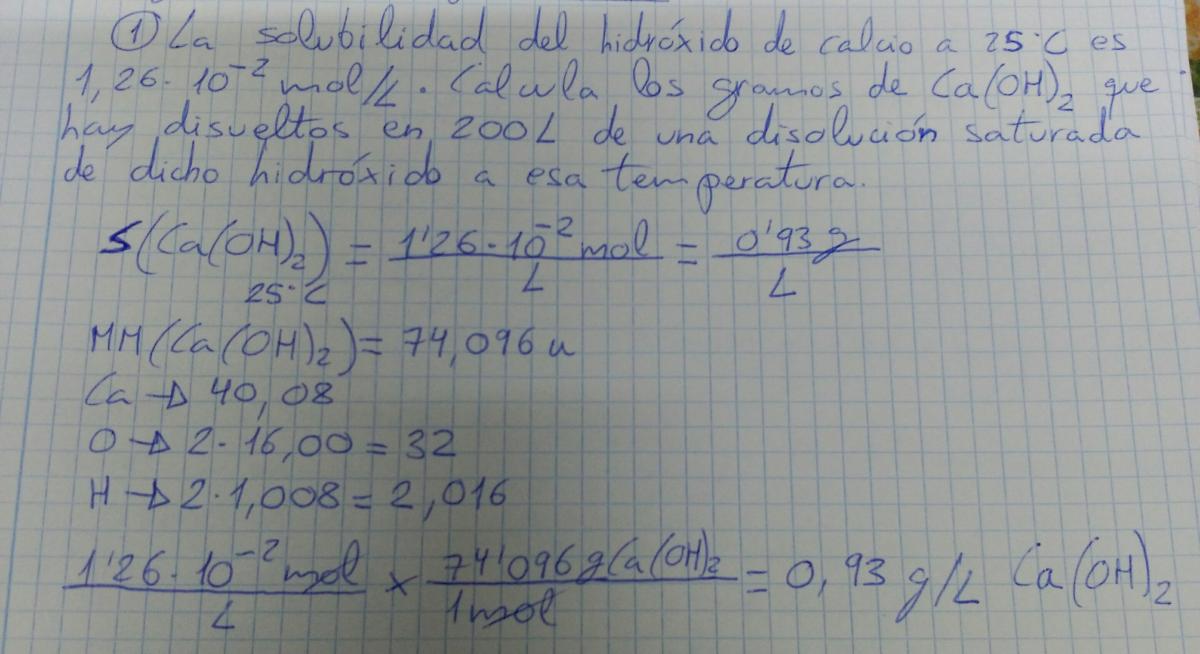 ① La solubilidad del hidróxido de calcio a 25°C es
1,26·10⁻² mol/L. Calcula los gramos de Ca(OH)₂ que
hay disueltos en 200L de una disolución saturada
de dicho hidróxido a esa temperatura.
S(Ca(OH)₂) 25°C = 1'26·10⁻² mol / L = 0'93 g / L
MM(Ca(OH)₂) = 74,096 u
Ca → 40,08
O → 2·16,00 = 32
H → 2·1,008 = 2,016
1'26·10⁻² mol / L × 74'096 g Ca(OH)₂ / 1 mol = 0,93 g/L Ca(OH)₂